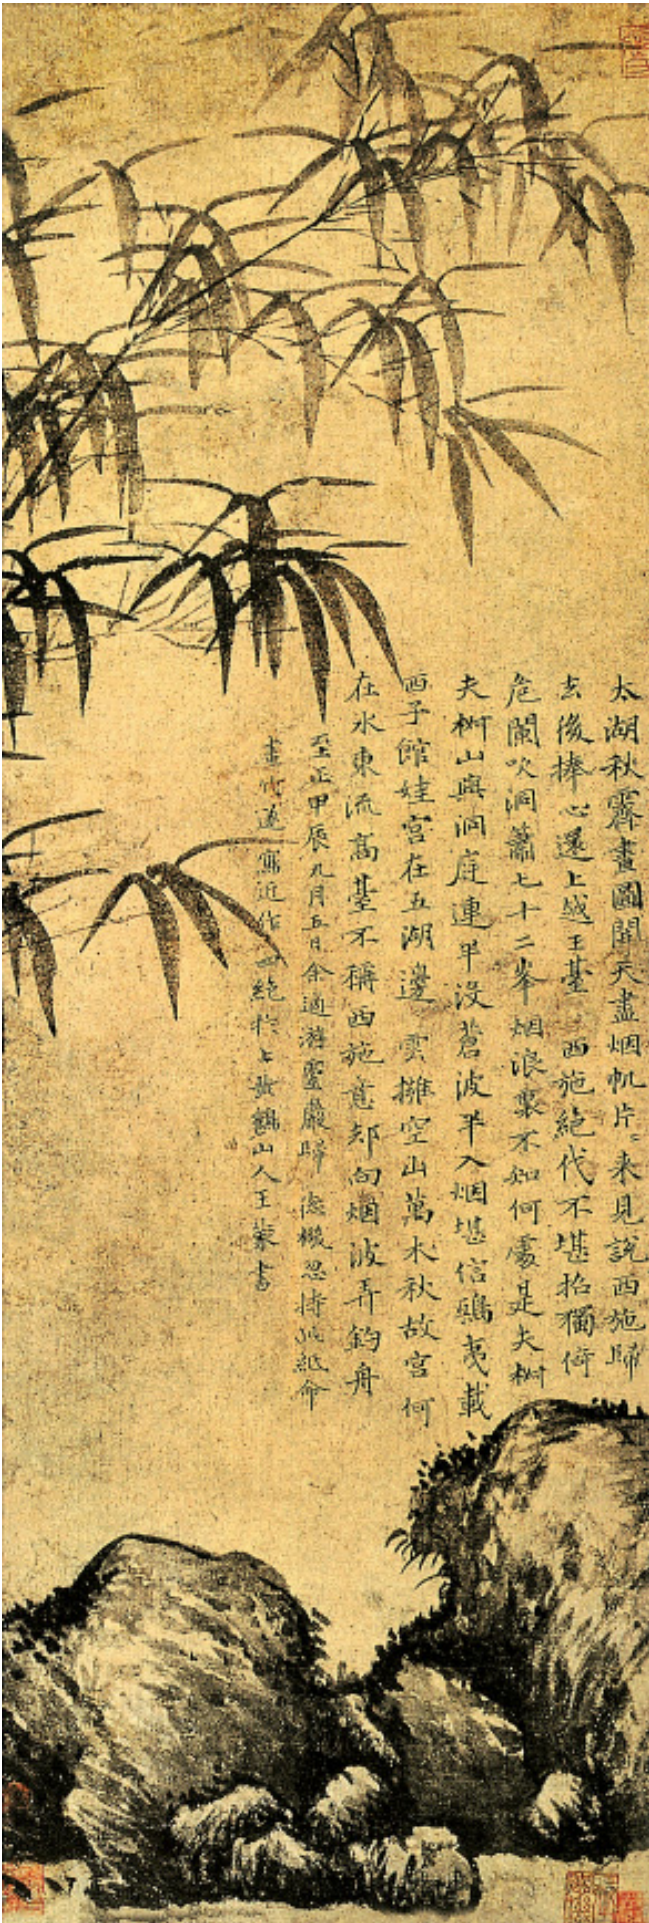 太湖秋霽畫圖開天盡烟帆片〻来見說西施歸
去後捧心還上越王臺　西施絕代不堪招獨倚
危闌吹洞簫七十二峯烟浪裏不知何處是夫椒
夫椒山與洞庭連半没蒼波半入烟堪信鴟夷載
西子館娃宫在五湖邊　雲擁空山萬木秋故宫何
在水東流高臺不稱西施意却向烟波弄釣舟
至正甲辰九月五日余適游靈巖歸　忽持此紙命
畫竹遂寫近作四絕於上黄鶴山人王蒙書